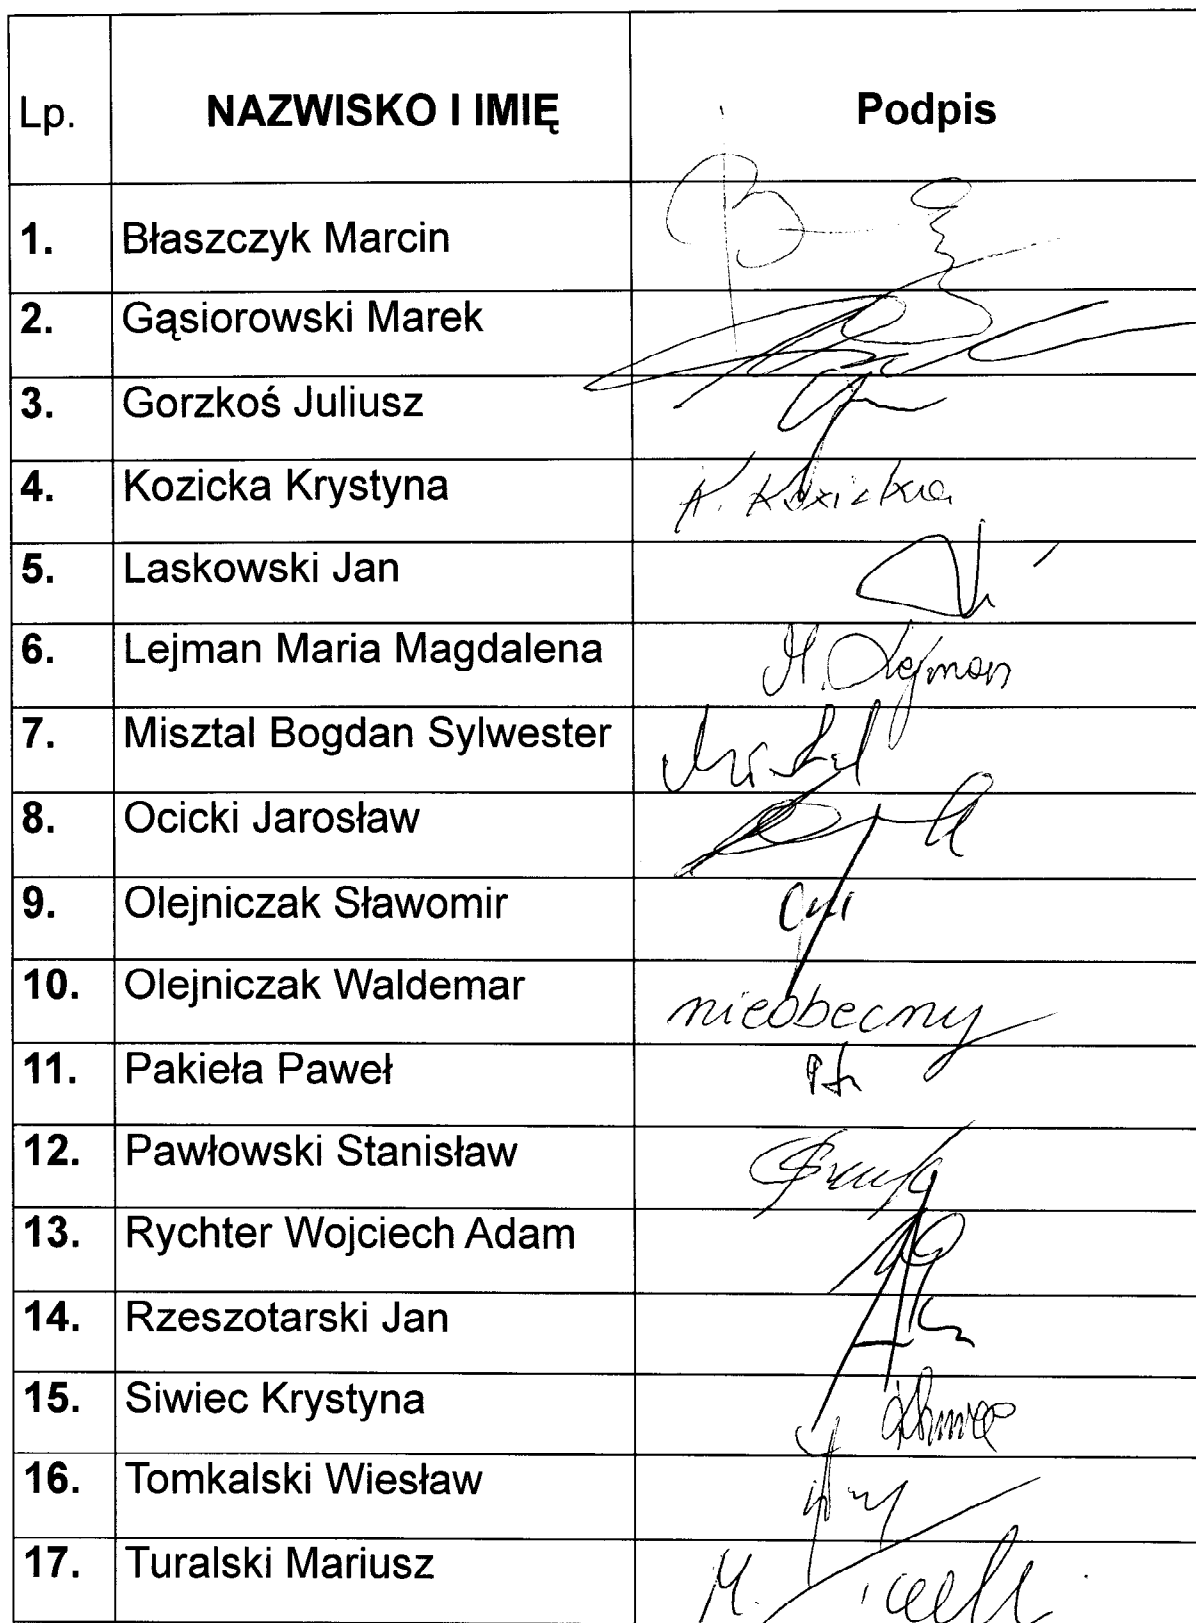 Lp. NAZWISKO I IMIĘ Podpis
1. Błaszczyk Marcin
2. Gąsiorowski Marek
3. Gorzkoś Juliusz
4. Kozicka Krystyna K. Kozicka
5. Laskowski Jan
6. Lejman Maria Magdalena M. Lejman
7. Misztal Bogdan Sylwester
8. Ocicki Jarosław
9. Olejniczak Sławomir
10. Olejniczak Waldemar nieobecny
11. Pakieła Paweł
12. Pawłowski Stanisław
13. Rychter Wojciech Adam
14. Rzeszotarski Jan
15. Siwiec Krystyna
16. Tomkalski Wiesław
17. Turalski Mariusz